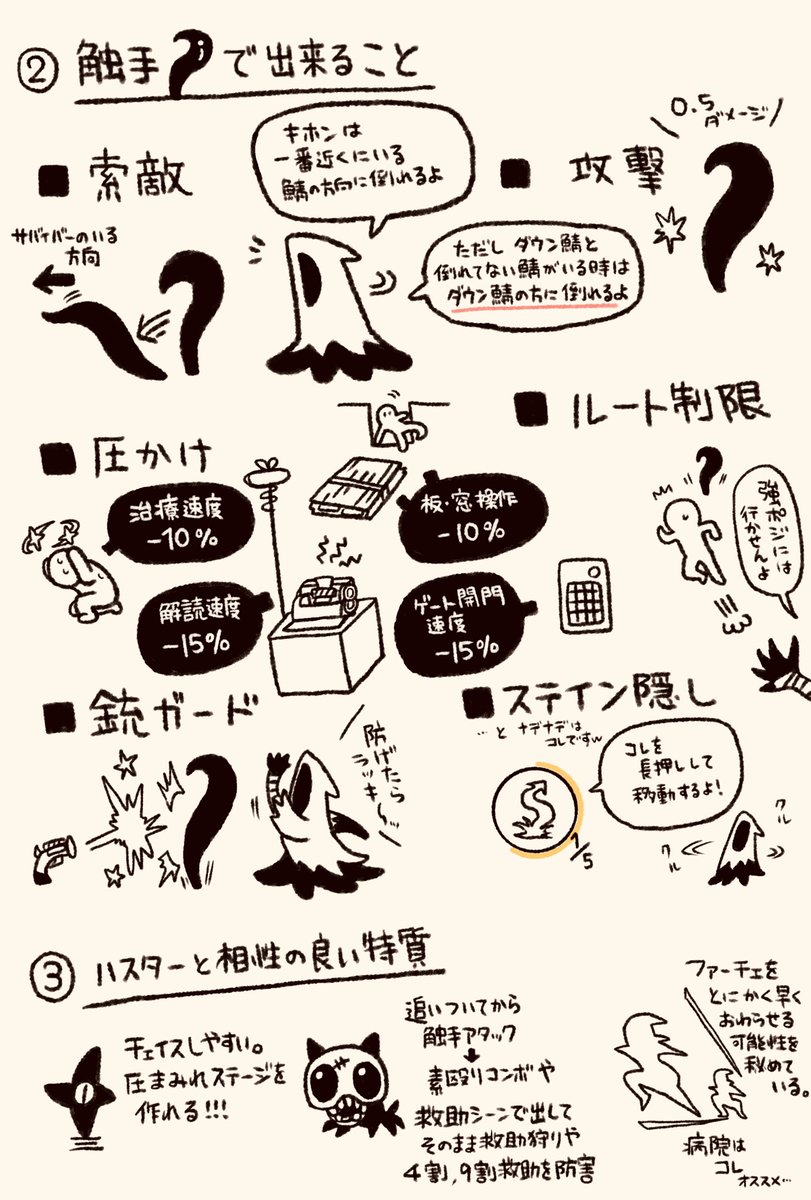 ② 触手で出来ること
■ 索敵
サバイバーのいる
方向
キホンは
一番近くにいる
鯖の方向に倒れるよ
ただし ダウン鯖と
倒れてない鯖がいる時は
ダウン鯖の方に倒れるよ
■ 攻撃
0.5
ダメージ
■ 圧かけ
治療速度
-10%
板・窓操作
-10%
解読速度
-15%
ゲート開門
速度
-15%
■ ルート制限
強ポジには
行かせんよ
■ 銃ガード
防げたら
ラッキ〜ッ
■ ステイン隠し
…と ナデナデは
コレですw
コレを
長押しして
移動するよ!
1/5
クル
クル
③ ハスターと相性の良い特質
チェイスしやすい。
圧まみれステージを
作れる!!!
追いついてから
触手アタック
↓
素殴りコンボや
救助シーンで出して
そのまま救助狩りや
4割,9割救助を防害
ファーチェを
とにかく早く
おわらせる
可能性を
秘めて
いる。
病院は
コレ
オススメ…